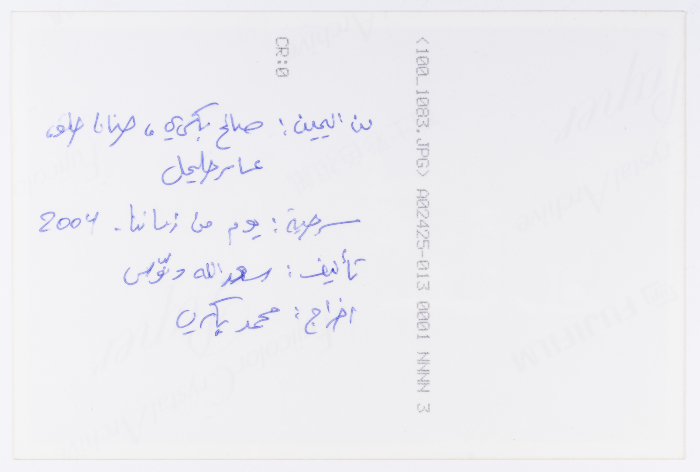 من اليمين: صالح بكري، حنان حلو،
عامر حليحل
مسرحية: يوم من زماننا. 2004
تأليف: سعد الله ونّوس
اخراج: محمد بكري
CR:0
<100_1083.JPG> A02425-013 0001 NNNN 3
FUJIFILM